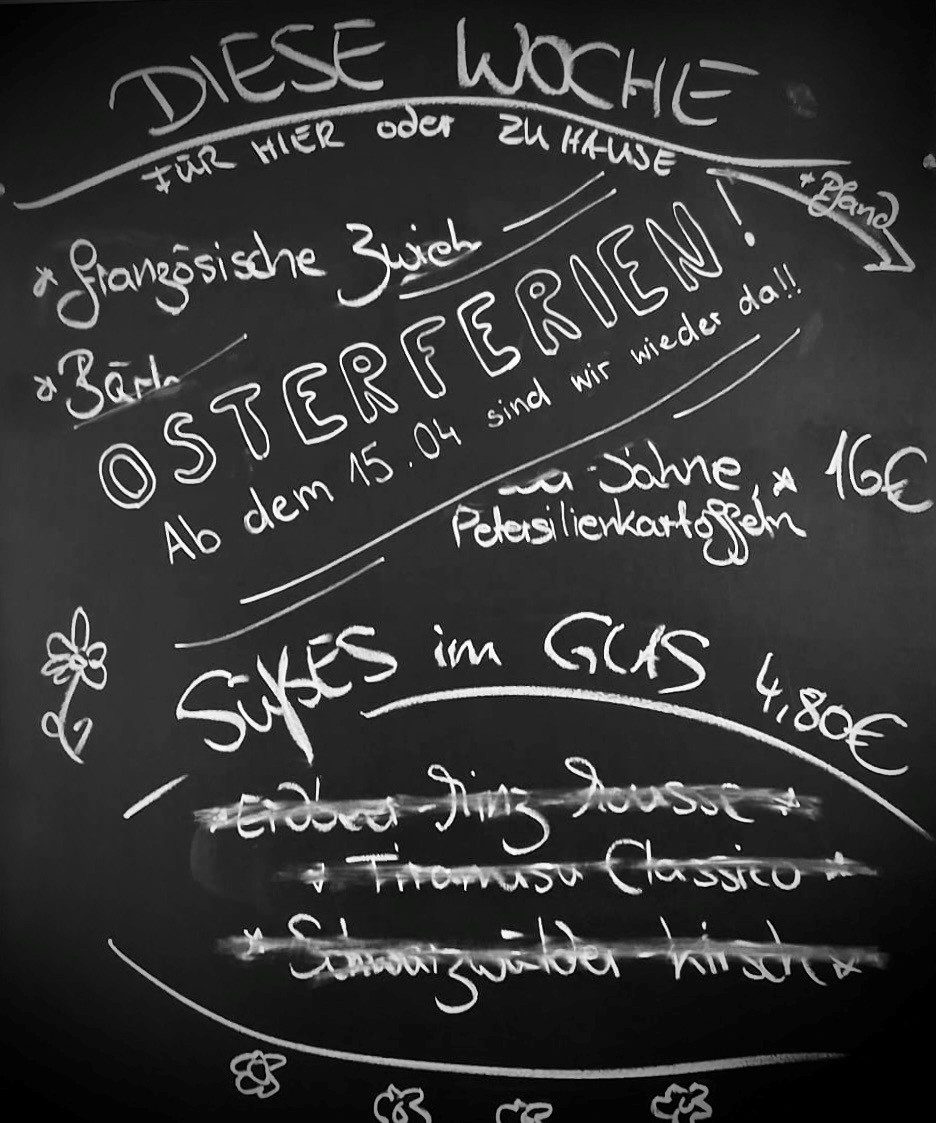 DIESE WOCHE
FÜR HIER oder ZU HAUSE
*Pfand
*französische Zwieb
*Bärl
OSTERFERIEN!
Ab dem 15.04 sind wir wieder da!!
Sahne,* 16€
Petersilienkartoffeln
SüßES im GLAS 4,80€
*Erdbeer-Minz-Mousse*
* Tiramisu Classico *
* Schwarzwälder-Kirsch *